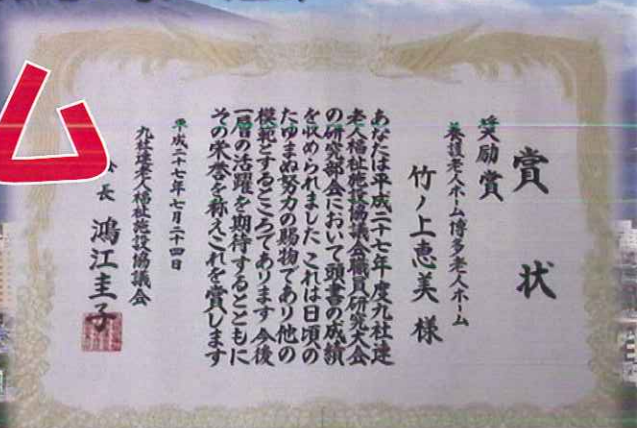 賞状
奨励賞
養護老人ホーム博多老人ホーム
竹ノ上恵美 様
あなたは平成二十七年度九社連
老人福祉施設協議会職員研究大会
の研究部会において頭書の成績
を収められました これは日頃の
たゆまぬ努力の賜物であり他の
模範とするところであります 今後
一層の活躍を期待するとともに
その栄誉を称えこれを賞します
平成二十七年七月二十四日
九社連老人福祉施設協議会
会長 鴻江圭子
ム